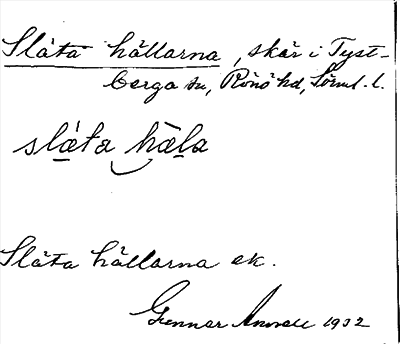 Släta hällarna, skär i Tyst-
berga sn, Rönö hd, Sörml. l.
slæ̀ta hæ̀la
Släta hällarna ek.
Gunnar 1932